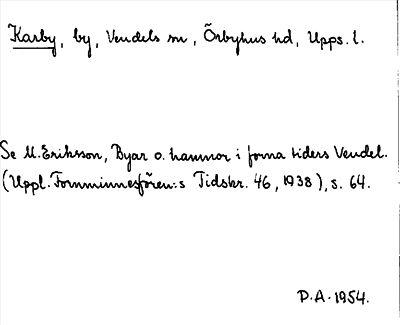 Karby, by, Vendels sn, Örbyhus hd, Upps. l.
Se M. Eriksson, Byar o. hamnor i forna tiders Vendel.
(Uppl. Fornminnesfören:s Tidskr. 46, 1938), s. 64.
P.A. 1954.